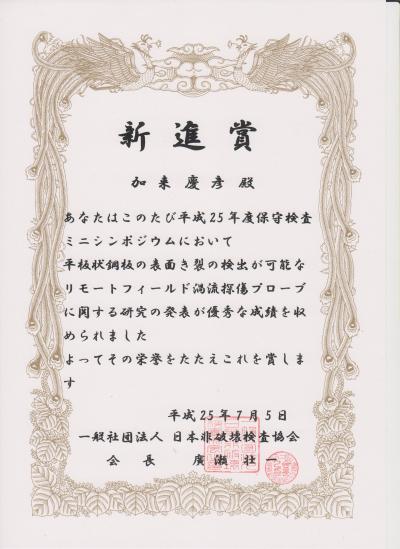 新進賞
加来慶彦殿
あなたはこのたび平成25年度保守検査
ミニシンポジウムにおいて
平板状鋼板の表面き裂の検出が可能な
リモートフィールド渦流探傷プローブ
に関する研究の発表が優秀な成績を収
められました
よってその栄誉をたたえこれを賞しま
す
平成25年7月5日
一般社団法人 日本非破壊検査協会
会長 廣瀬壮一